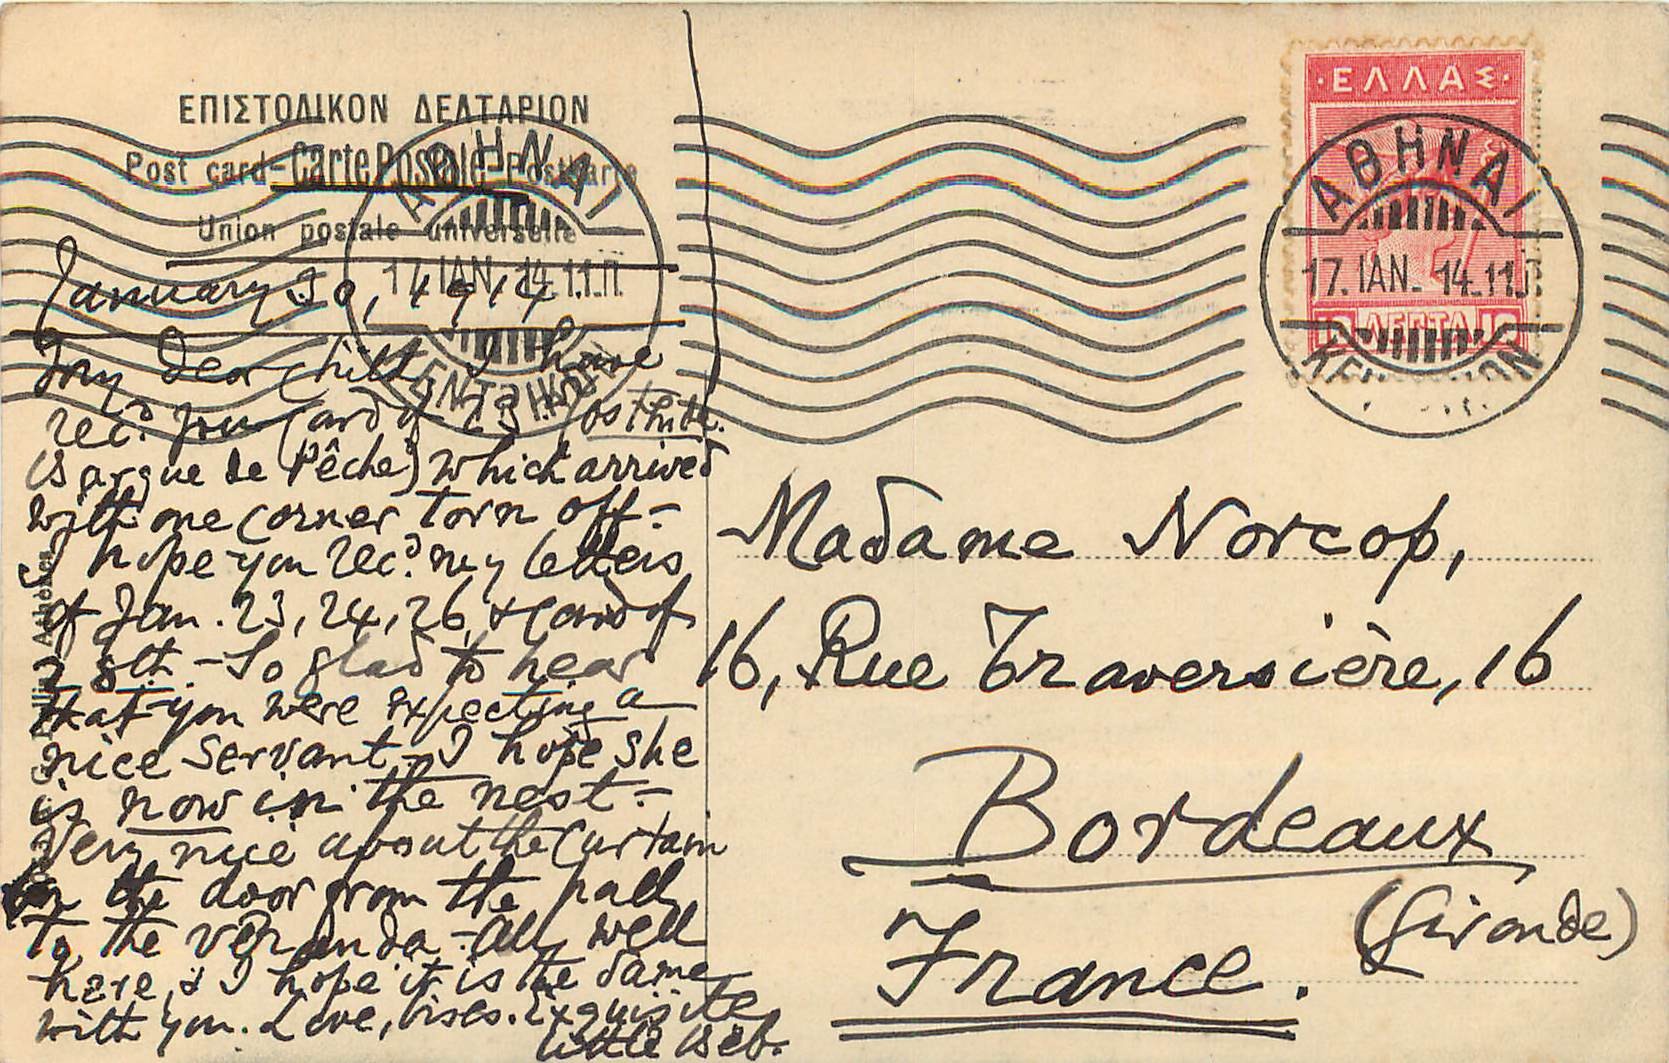 ΕΠΙΣΤΟΛΙΚΟΝ ΔΕΛΤΑΡΙΟΝ
Post card-Carte Postale-Postkarte
Union postale universelle
ΑΘΗΝΑΙ
17. ΙΑΝ. 14.11.Π
January 30, 1914.
My dear Child, I have
rec? your Card of 23
(Barque de Pêche) which arrived
with one corner torn off-
I hope you rec? my letters
of Jan. 23, 24, 26, & Card of
28th. - So glad to hear
that you were expecting a
nice servant - I hope she
is now in the nest. -
Very nice about the Curtain
on the door from the hall
to the veranda - All well
here, & I hope it is the same
with you. Love, bises. Exquisite
little
·ΕΛΛΑΣ·
10 ΛΕΠΤΑ 10
ΑΘΗΝΑΙ
17. ΙΑΝ. 14.11.Π
Madame Norcop,
16, Rue Traversière, 16
Bordeaux
(Gironde)
France.